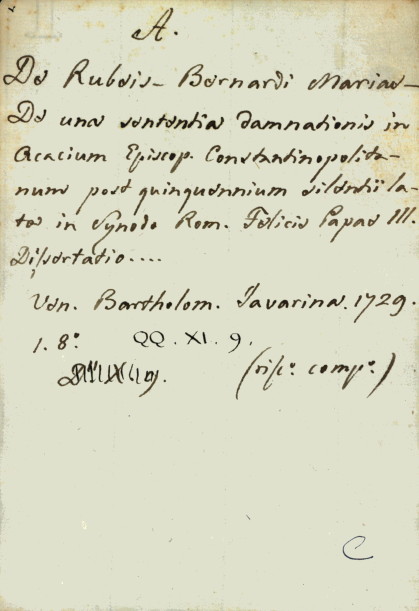 A.
De Rubeis - Bernardi Mariae -
De una sententia damnationis in
Acacium Episcop. Constantinopolita-
num post quinquennium silentii la-
tae in Synodo Rom. Felicis Papae III.
Dissertatio....
Ven. Bartholom. Javarina. 1729.
1. 8.º QQ. XI. 9.
(risc.º comp.º)
C